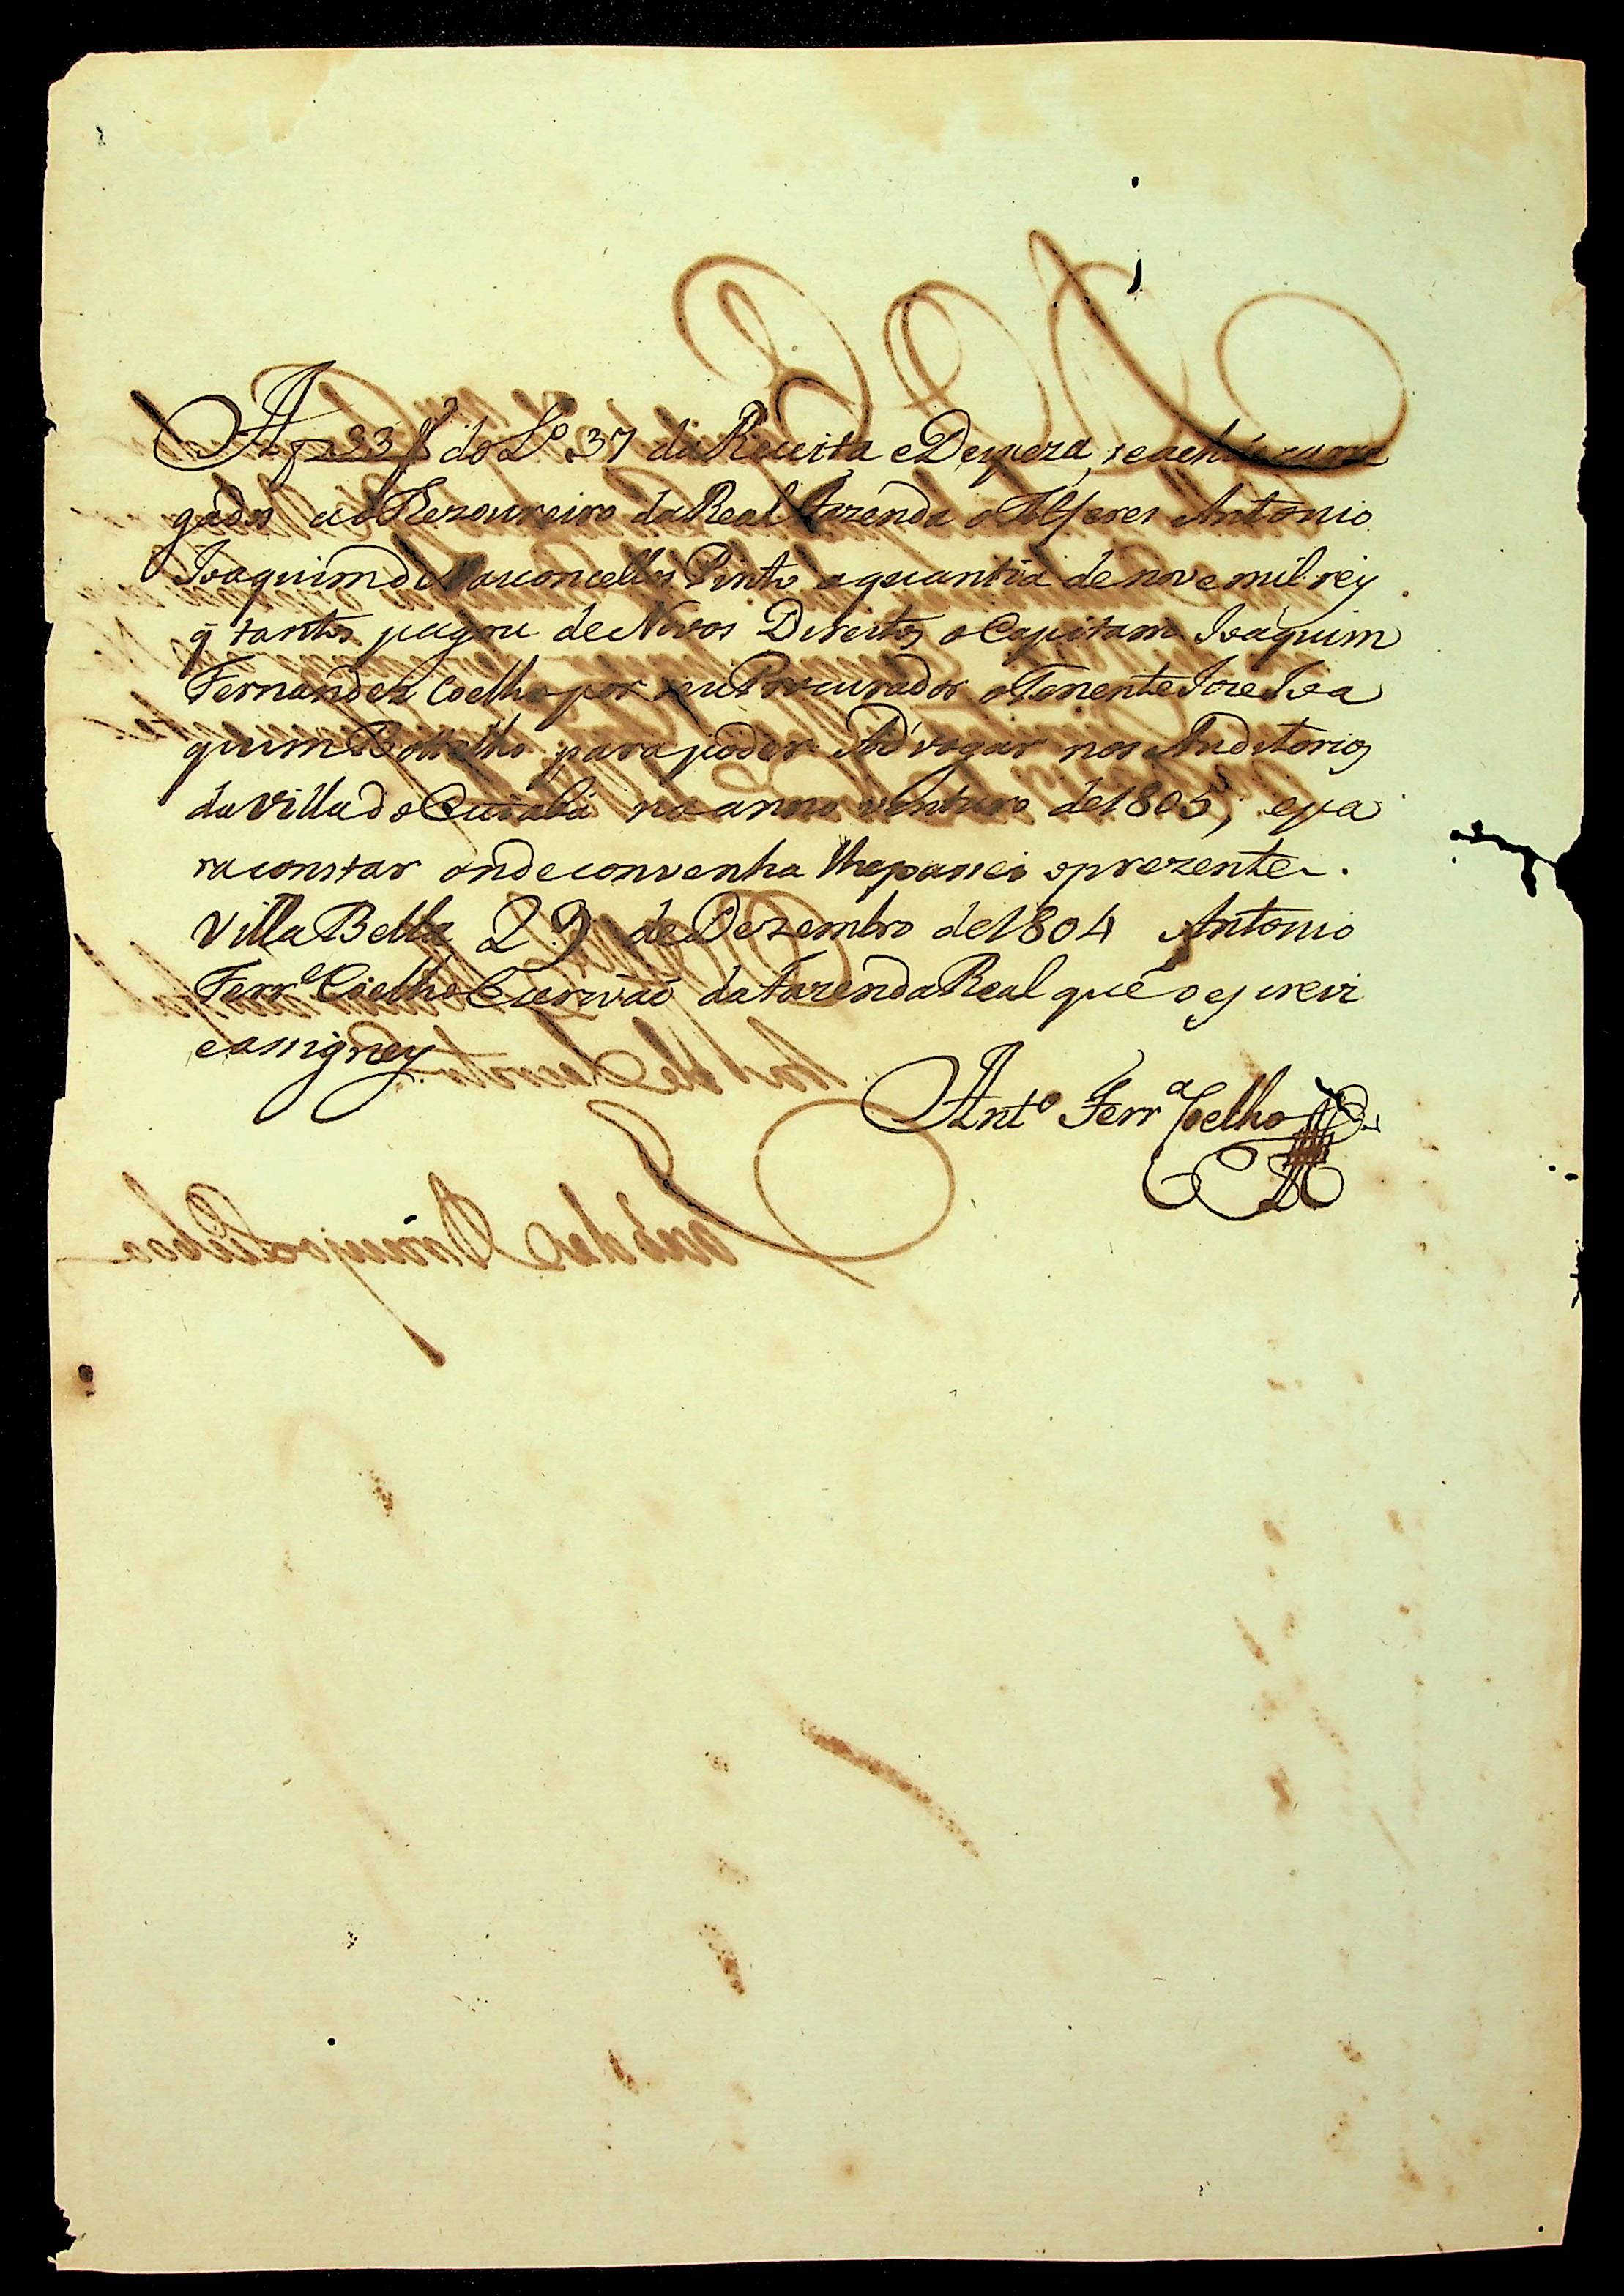 A f 23 do L.º 37 da Receita e Despeza, se achão carre
gados ao Thezoureiro da Real Fazenda o Alferes Antonio
Joaquim de Vasconcellos Pinto a quantia de nove mil reis
q̃ tantos pagou de Novos Direitos o Capitam Joaquim
Fernandez Coelho por seu Procurador o Tenente Joze Joa
quim Botelho para poder Advogar nos Auditorios
da Villa do Cuiabá no anno venturo de 1805, e pa
ra constar onde convenha lhe passei o prezente.
Villa Bella 29 de Dezembro de 1804 Antonio
Ferr.ª Coelho Escrivão da Fazenda Real que o escrevi
e assigney
Ant.º Ferr.ª Coelho